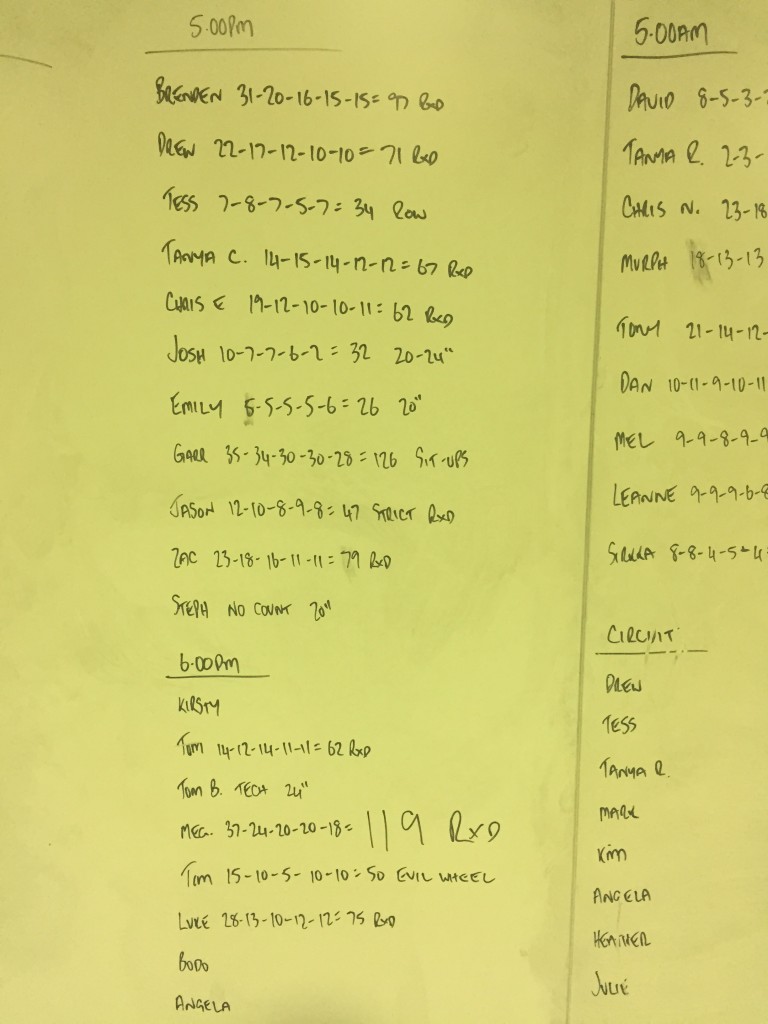 5.00PM
BRENDEN 31-20-16-15-15= 97 RxD
DREW 22-17-12-10-10= 71 RxD
TESS 7-8-7-5-7= 34 ROW
TANYA C. 14-15-14-12-12=67 RxD
CHRIS E 19-12-10-10-11= 62 RxD
JOSH 10-7-7-6-2 = 32 20-24"
EMILY 5-5-5-5-6=26 20"
GARR 35-34-30-30-28=126 SIT-UPS
JASON 12-10-8-9-8=47 STRICT RxD
ZAC 23-18-16-11-11=79 RxD
STEPH NO COUNT 20"
6.00PM
KIRSTY
TOM 14-12-14-11-11=62 RxD
TOM B. TECH 24"
MEG. 37-24-20-20-18= 119 RXD
TIM 15-10-5-10-10=50 EVIL WHEEL
LUKE 28-13-10-12-12=75 RxD
BODO
ANGELA
5.00AM
DAVID 8-5-3-
TANYA R. 2-3-
CHRIS N. 23-18
MURPH 18-13-13
TONY 21-14-12-
DAN 10-11-9-10-11
MEL 9-9-8-9-9
LEANNE 9-9-9-6-8
8-8-4-5-4=
CIRCUIT
DREW
TESS
TANYA R.
MARK
KIM
ANGELA
HEATHER
JULIE